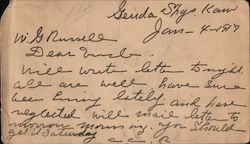 Genda Spgs Kan
Jan - 4 - 1917
W. G. Russell
Dear Uncle.
Will write letter to night
all are well have
been busy lately and have
neglected will mail letter to
morrow morning. you should
get it Saturday
C.C.R.